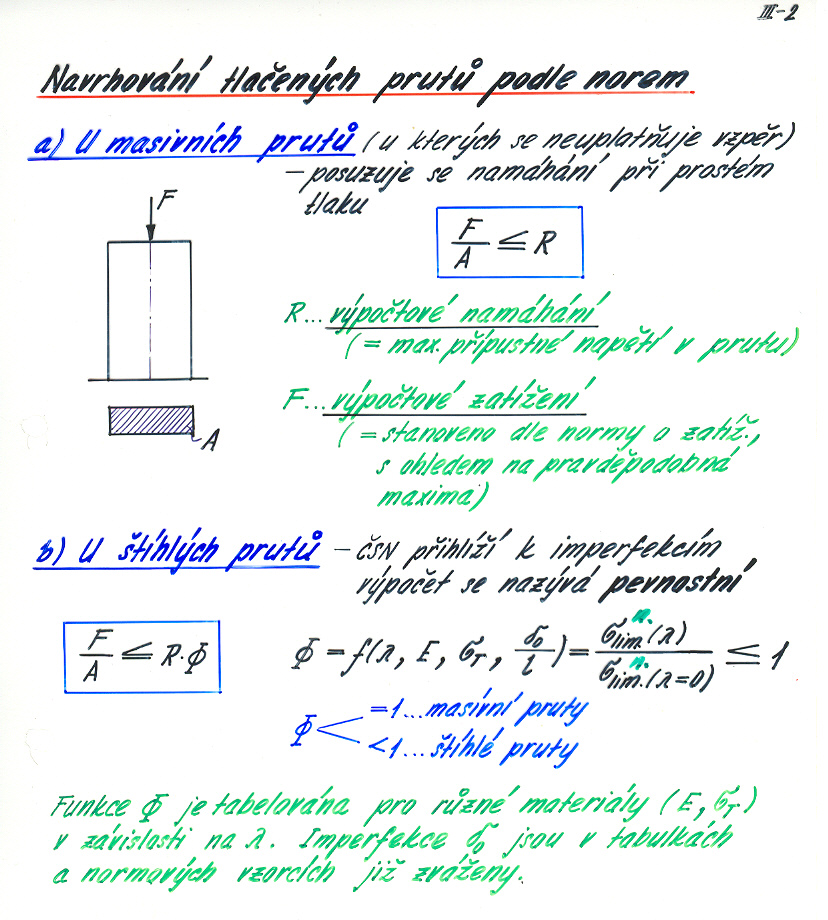 III-2
Navrhování tlačených prutů podle norem
a) U masivních prutů (u kterých se neuplatňuje vzpěr)
– posuzuje se namáhání při prostém
tlaku
F
F/A ≦ R
R... výpočtové namáhání
(= max. přípustné napětí v prutu)
F... výpočtové zatížení
(= stanoveno dle normy o zatíž.,
s ohledem na pravděpodobná
maxima)
A
b) U štíhlých prutů – ČSN přihlíží k imperfekcím
výpočet se nazývá pevnostní
F/A ≦ R·Φ
Φ = f(λ, E, σT, δ0/l) = σlim.n.(λ) / σlim.n.(λ=0) ≦ 1
Φ
=1... masívní pruty
<1... štíhlé pruty
Funkce Φ je tabelována pro různé materiály (E, σT)
v závislosti na λ. Imperfekce δ0 jsou v tabulkách
a normových vzorcích již zváženy.